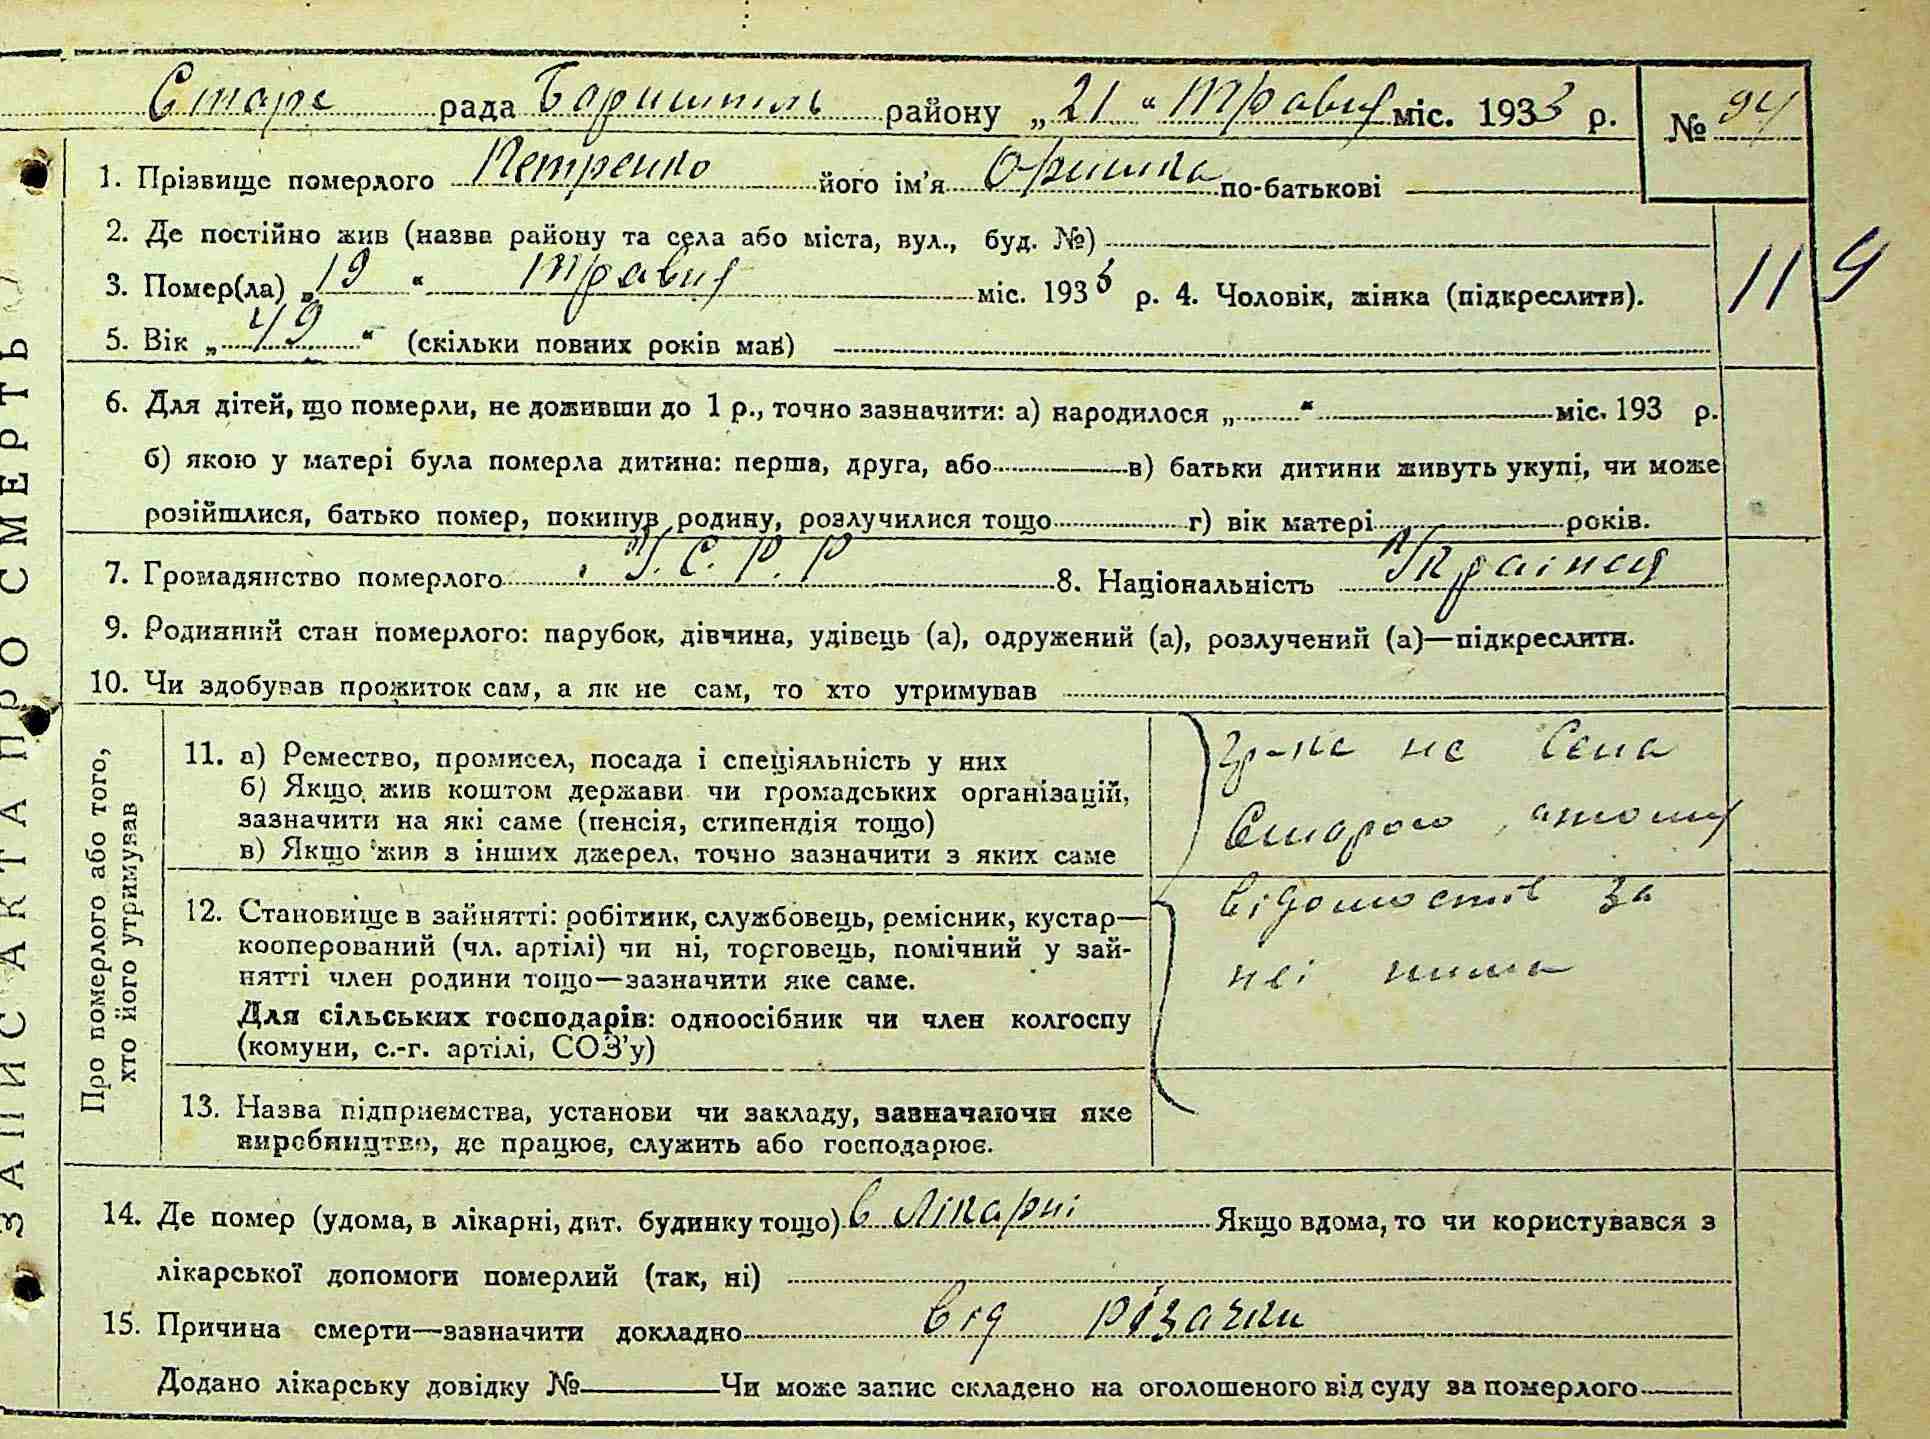 Старе рада Баришпіль району „21“ Травня міс. 1933 р. № 94
1. Прізвище померлого Петренко його ім’я Оришка по-батькові
2. Де постійно жив (назва району та села або міста, вул., буд. №)
3. Помер(ла) „19“ Травня міс. 1933 р. 4. Чоловік, жінка (підкреслити).
119
5. Вік „49“ (скільки повних років мав)
6. Для дітей, що померли, не доживши до 1 р., точно зазначити: а) народилося „ “ міс. 193 р.
б) якою у матері була померла дитина: перша, друга, або в) батьки дитини живуть укупі, чи може
розійшлися, батько помер, покинув родину, розлучилися тощо г) вік матері років.
7. Громадянство померлого У.С.Р.Р 8. Національність Україньця
9. Родинний стан померлого: парубок, дівчина, удівець (а), одружений (а), розлучений (а)—підкреслити.
10. Чи здобував прожиток сам, а як не сам, то хто утримував
Про померлого або того,
хто його утримував
11. а) Ремество, промисел, посада і спеціяльність у них
б) Якщо жив коштом держави чи громадських організацій,
зазначити на які саме (пенсія, стипендія тощо)
в) Якщо жив з інших джерел, точно зазначити з яких саме
гр-ка не Села
Старого, атому
відомостів за
неї нима
12. Становище в зайнятті: робітник, службовець, ремісник, кустар—
кооперований (чл. артілі) чи ні, торговець, помічний у зай-
нятті член родини тощо—зазначити яке саме.
Для сільських господарів: одноосібник чи член колгоспу
(комуни, с.-г. артілі, СОЗ’у)
13. Назва підприємства, установи чи закладу, зазначаючи яке
виробництво, де працює, служить або господарює.
14. Де помер (удома, в лікарні, дит. будинку тощо) в лікарні Якщо вдома, то чи користувався з
лікарської допомоги померлий (так, ні)
15. Причина смерти—зазначити докладно від різачки
Додано лікарську довідку № Чи може запис складено на оголошеного від суду за померлого
ЗАПИС АКТА ПРО СМЕРТЬ